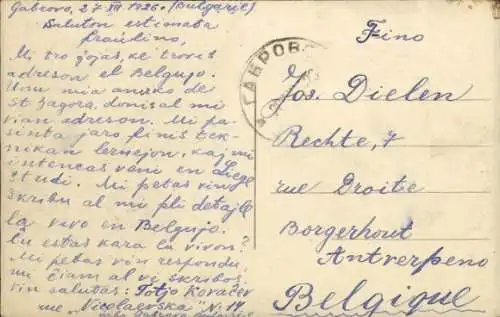 Gabrovo, 27 XII 1926. (Bulgarie)
Saluton estimata
Fraŭlino,
Mi tro ĝojas, ke trovis
adreson el Belgujo.
Unu mia amiko de
St. Zagora, donis al mi
vian adreson. Mi pa-
sinta jaro finis tek-
nikan lernejon, kaj mi
intencas veni en Liege
studi. Mi petas vin
skribu al mi pli detajle
la vivo en Belgujo.
Ĉu estas kara la vivon?
Mi petas vin respondu,
mi ĉiam al vi skribos.
Vin salutas: Totjo Kovaĉev
rue "Nicolaevska" №
ГАБРОВО
Fino
Jos. Dielen
Rechte, 7
rue Droite
Borgerhout
Antverpeno
Belgique